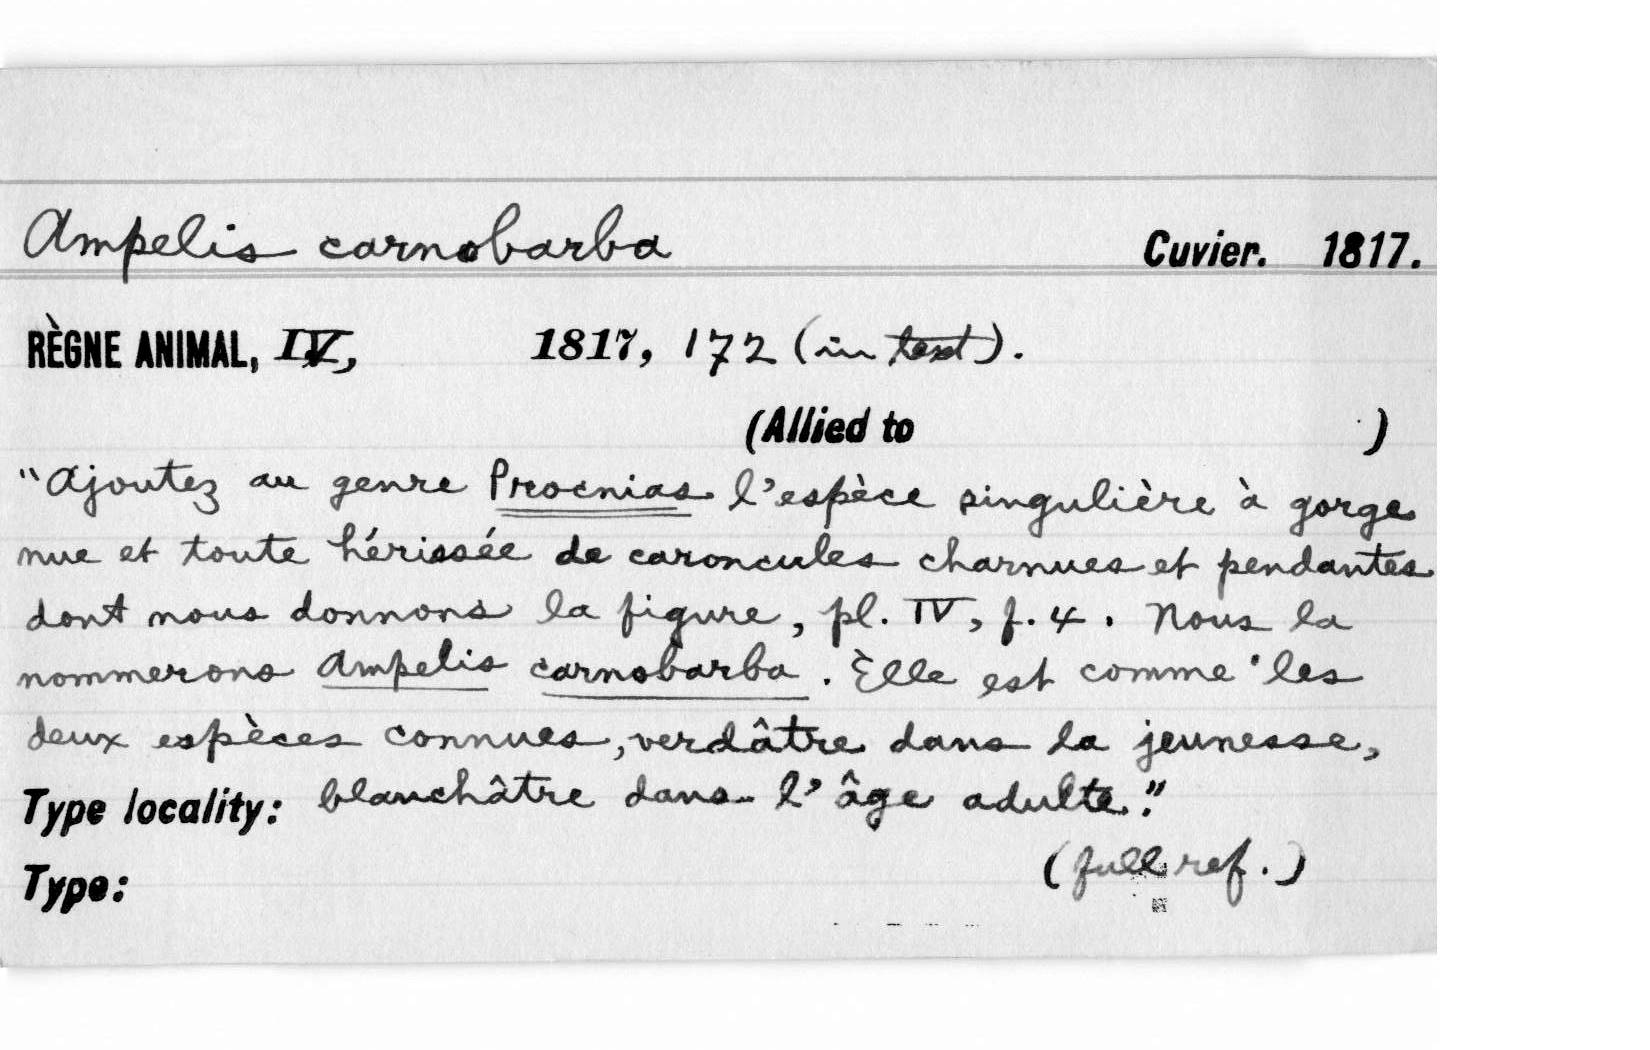 Ampelis carnobarba Cuvier. 1817.
RÈGNE ANIMAL, IV, 1817, 172 (in text).
(Allied to )
"Ajoutez au genre Procnias l'espèce singulière à gorge
nue et toute hérissée de caroncules charnues et pendantes
dont nous donnons la figure, pl. IV, f. 4. Nous la
nommerons Ampelis carnobarba. Èlle est comme les
deux espèces connues, verdâtre dans la jeunesse,
Type locality: blanchâtre dans l'âge adulte."
(full ref.)
Type: